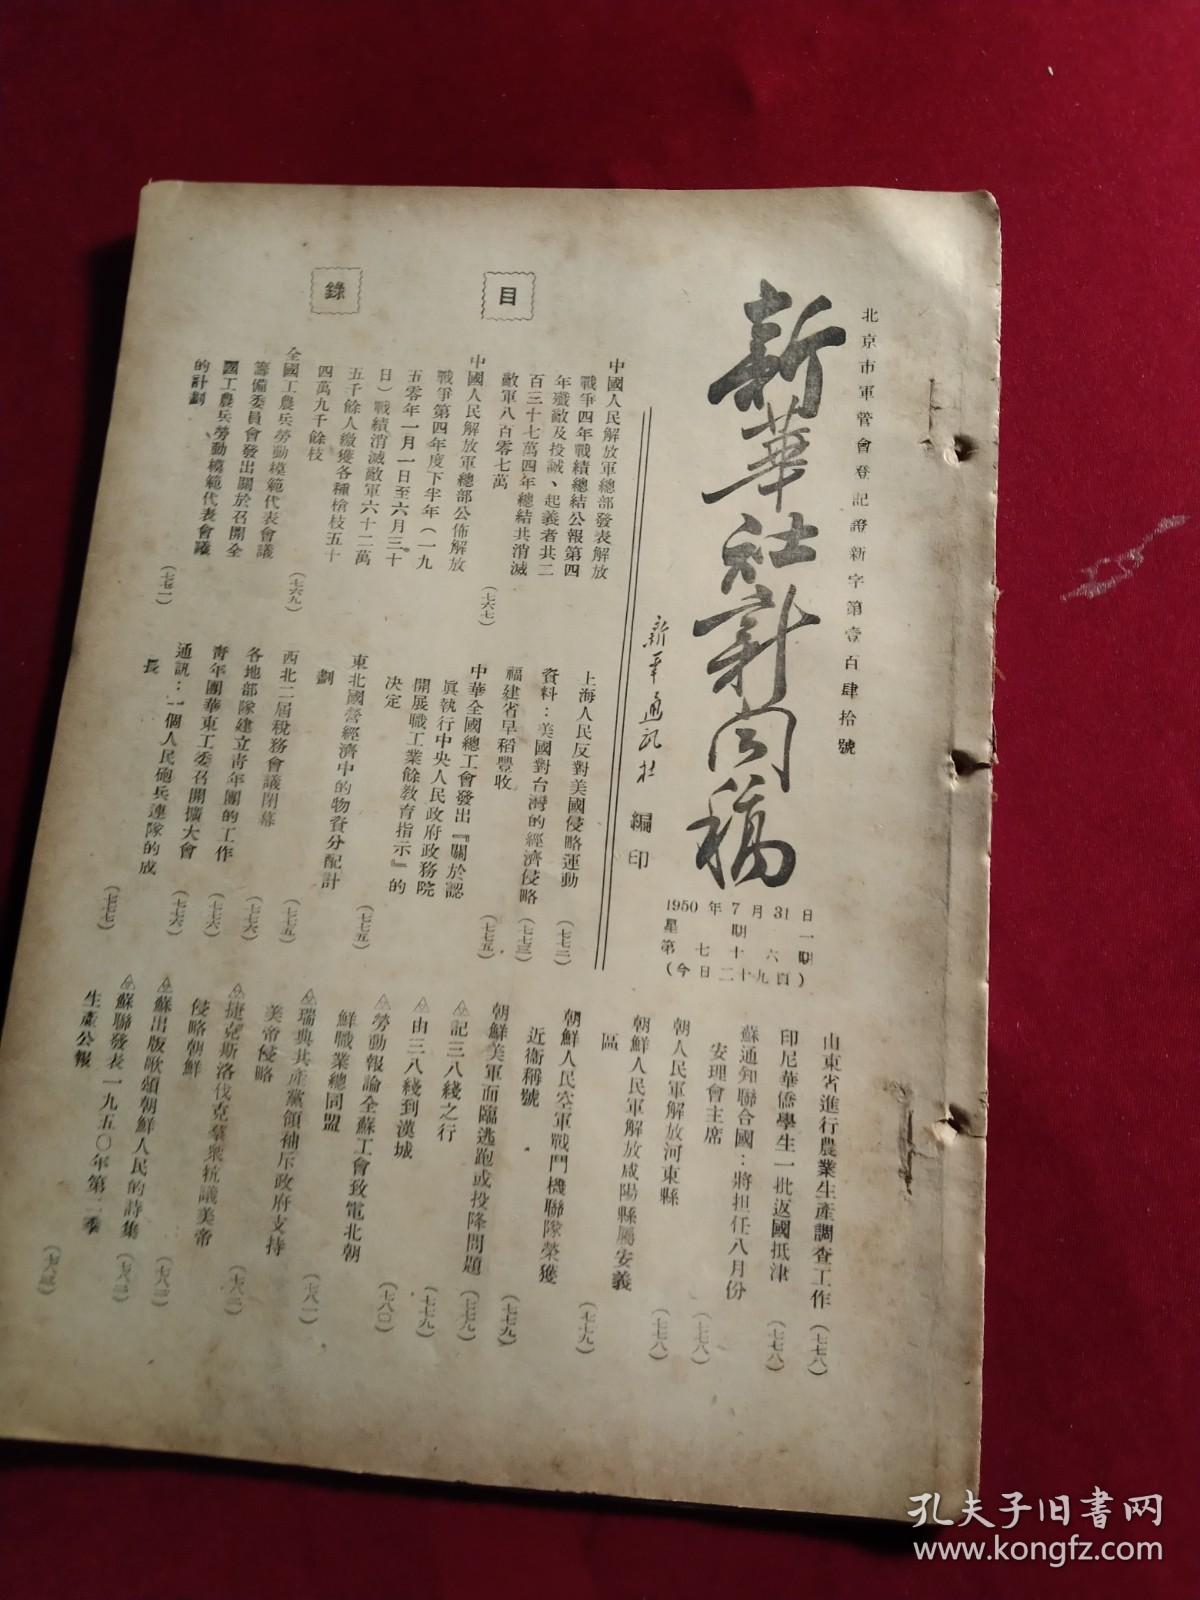 北京市軍管會登記證新字第壹百肆拾號
新華社新聞稿
1950年7月31日
星期一
第七十六期
(今日二十九頁)
新華通訊社 編印
目錄
中國人民解放軍總部發表解放
戰爭四年戰績總結公報第四
年殲敵及投誠、起義者共二
百三十七萬四年總結共消滅
敵軍八百零七萬
(七六七)
中國人民解放軍總部公佈解放
戰爭第四年度下半年(一九
五零年一月一日至六月三十
日)戰績消滅敵軍六十二萬
五千餘人繳獲各種槍枝五十
四萬九千餘枝
(七六九)
全國工農兵勞動模範代表會議
籌備委員會發出關於召開全
國工農兵勞動模範代表會議
的計劃
(七七一)
上海人民反對美國侵略運動
(七七二)
資料:美國對台灣的經濟侵略
(七七三)
福建省早稻豐收
(七七五)
中華全國總工會發出『關於認
眞執行中央人民政府政務院
開展職工業餘教育指示』的
決定
(七七五)
東北國營經濟中的物資分配計
劃
(七七五)
西北二屆稅務會議閉幕
(七七六)
各地部隊建立靑年團的工作
(七七六)
靑年團華東工委召開擴大會
(七七六)
通訊:一個人民砲兵連隊的成
長
(七七七)
山東省進行農業生產調查工作
(七七八)
印尼華僑學生一批返國抵津
(七七八)
蘇通知聯合國:將担任八月份
安理會主席
(七七八)
朝人民軍解放河東縣
(七七八)
朝鮮人民軍解放咸陽縣屬安義
區
(七七九)
朝鮮人民空軍戰鬥機聯隊榮獲
近衞稱號
(七七九)
朝鮮美軍面臨逃跑或投降問題
(七七九)
記三八綫之行
(七七九)
由三八綫到漢城
(七八〇)
勞動報論全蘇工會致電北朝
鮮職業總同盟
(七八一)
瑞典共產黨領袖斥政府支持
美帝侵略
(七八二)
捷克斯洛伐克羣衆抗議美帝
侵略朝鮮
(七八二)
蘇出版歌頌朝鮮人民的詩集
(七八二)
蘇聯發表一九五〇年第二季
生產公報
孔夫子旧书网
www.kongfz.com